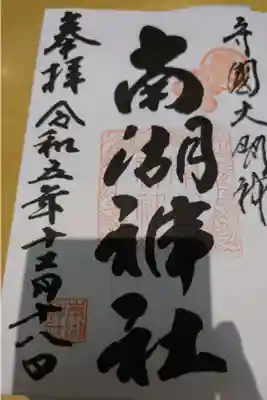 守國大明神
南湖神社
奉拝 令和五年十二月十八日